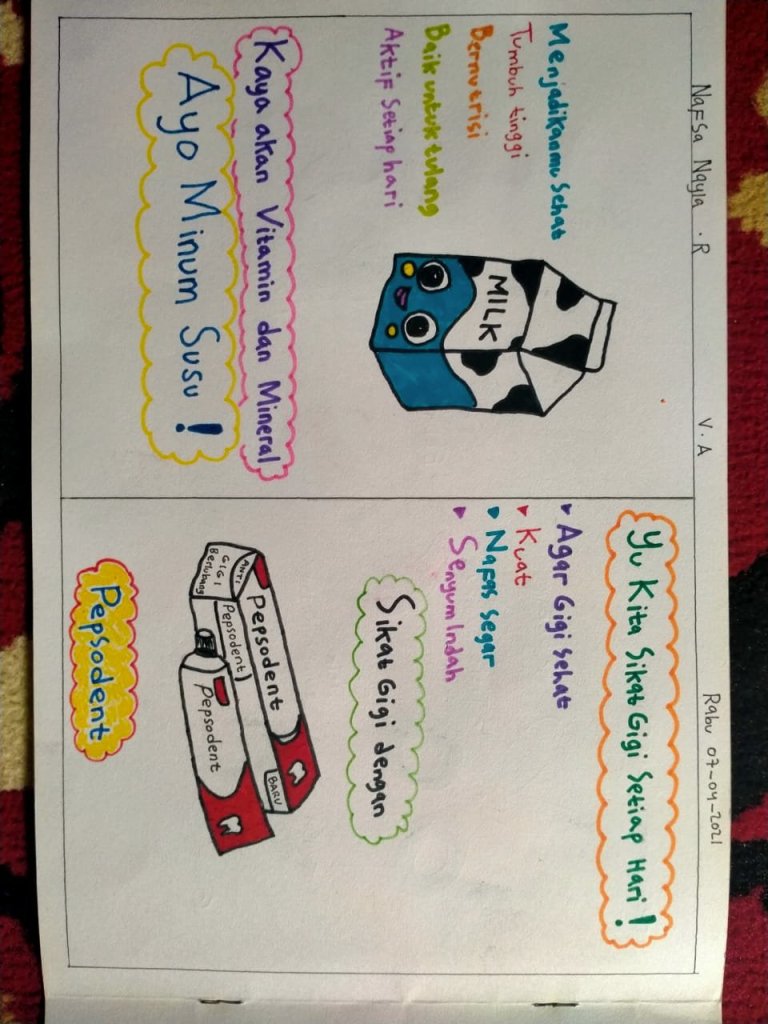 Nafsa Nayla . R
V . A
Rabu 07-04-2021
Menjadikanmu Sehat
Tumbuh tinggi
Bernutrisi
Baik untuk tulang
Aktif Setiap hari
MILK
Kaya akan Vitamin dan Mineral
Ayo Minum Susu !
Yu Kita Sikat Gigi Setiap Hari !
Agar Gigi Sehat
Kuat
Napas Segar
Senyum Indah
Sikat Gigi dengan
Pepsodent
BARU
ANTI
GIGI
Berlubang
Pepsodent
Pepsodent
Pepsodent